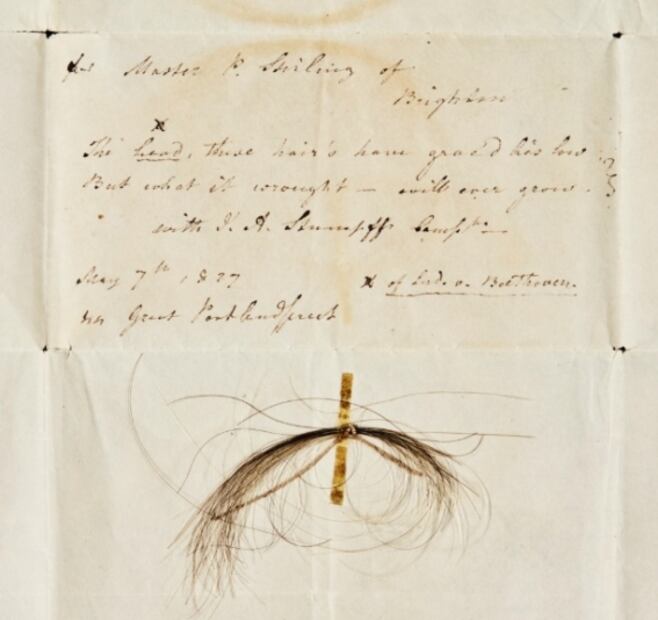 for Master P. Stirling of
Brighton
x
The head, these hair's have grac'd lies low
But what it wrought – will ever grow.
with J. A. Stumpff's Comp.ts
May 7th 1827
x of Lud. v. Beethoven.
Great Portlandstreet